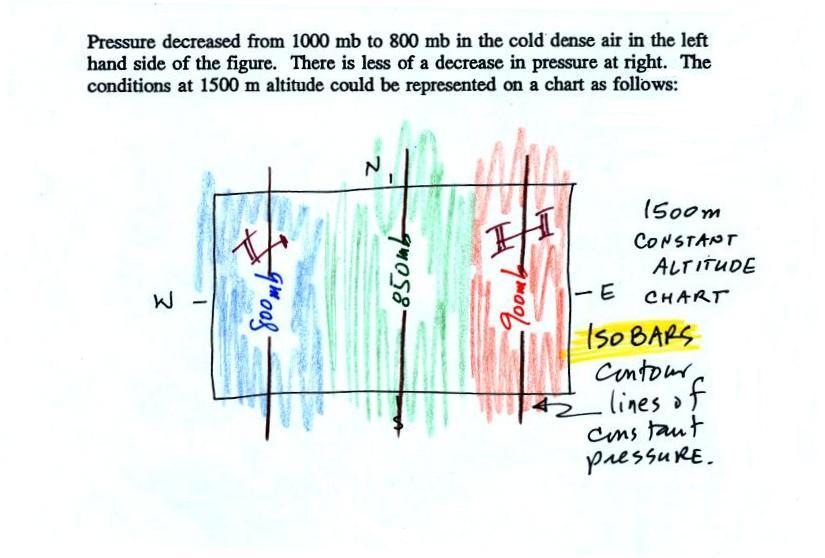 Pressure decreased from 1000 mb to 800 mb in the cold dense air in the left
hand side of the figure. There is less of a decrease in pressure at right. The
conditions at 1500 m altitude could be represented on a chart as follows:
N
W
L
800mb
850mb
H
900mb
E
S
1500m
CONSTANT
ALTITUDE
CHART
ISOBARS
contour
lines of
constant
pressure.